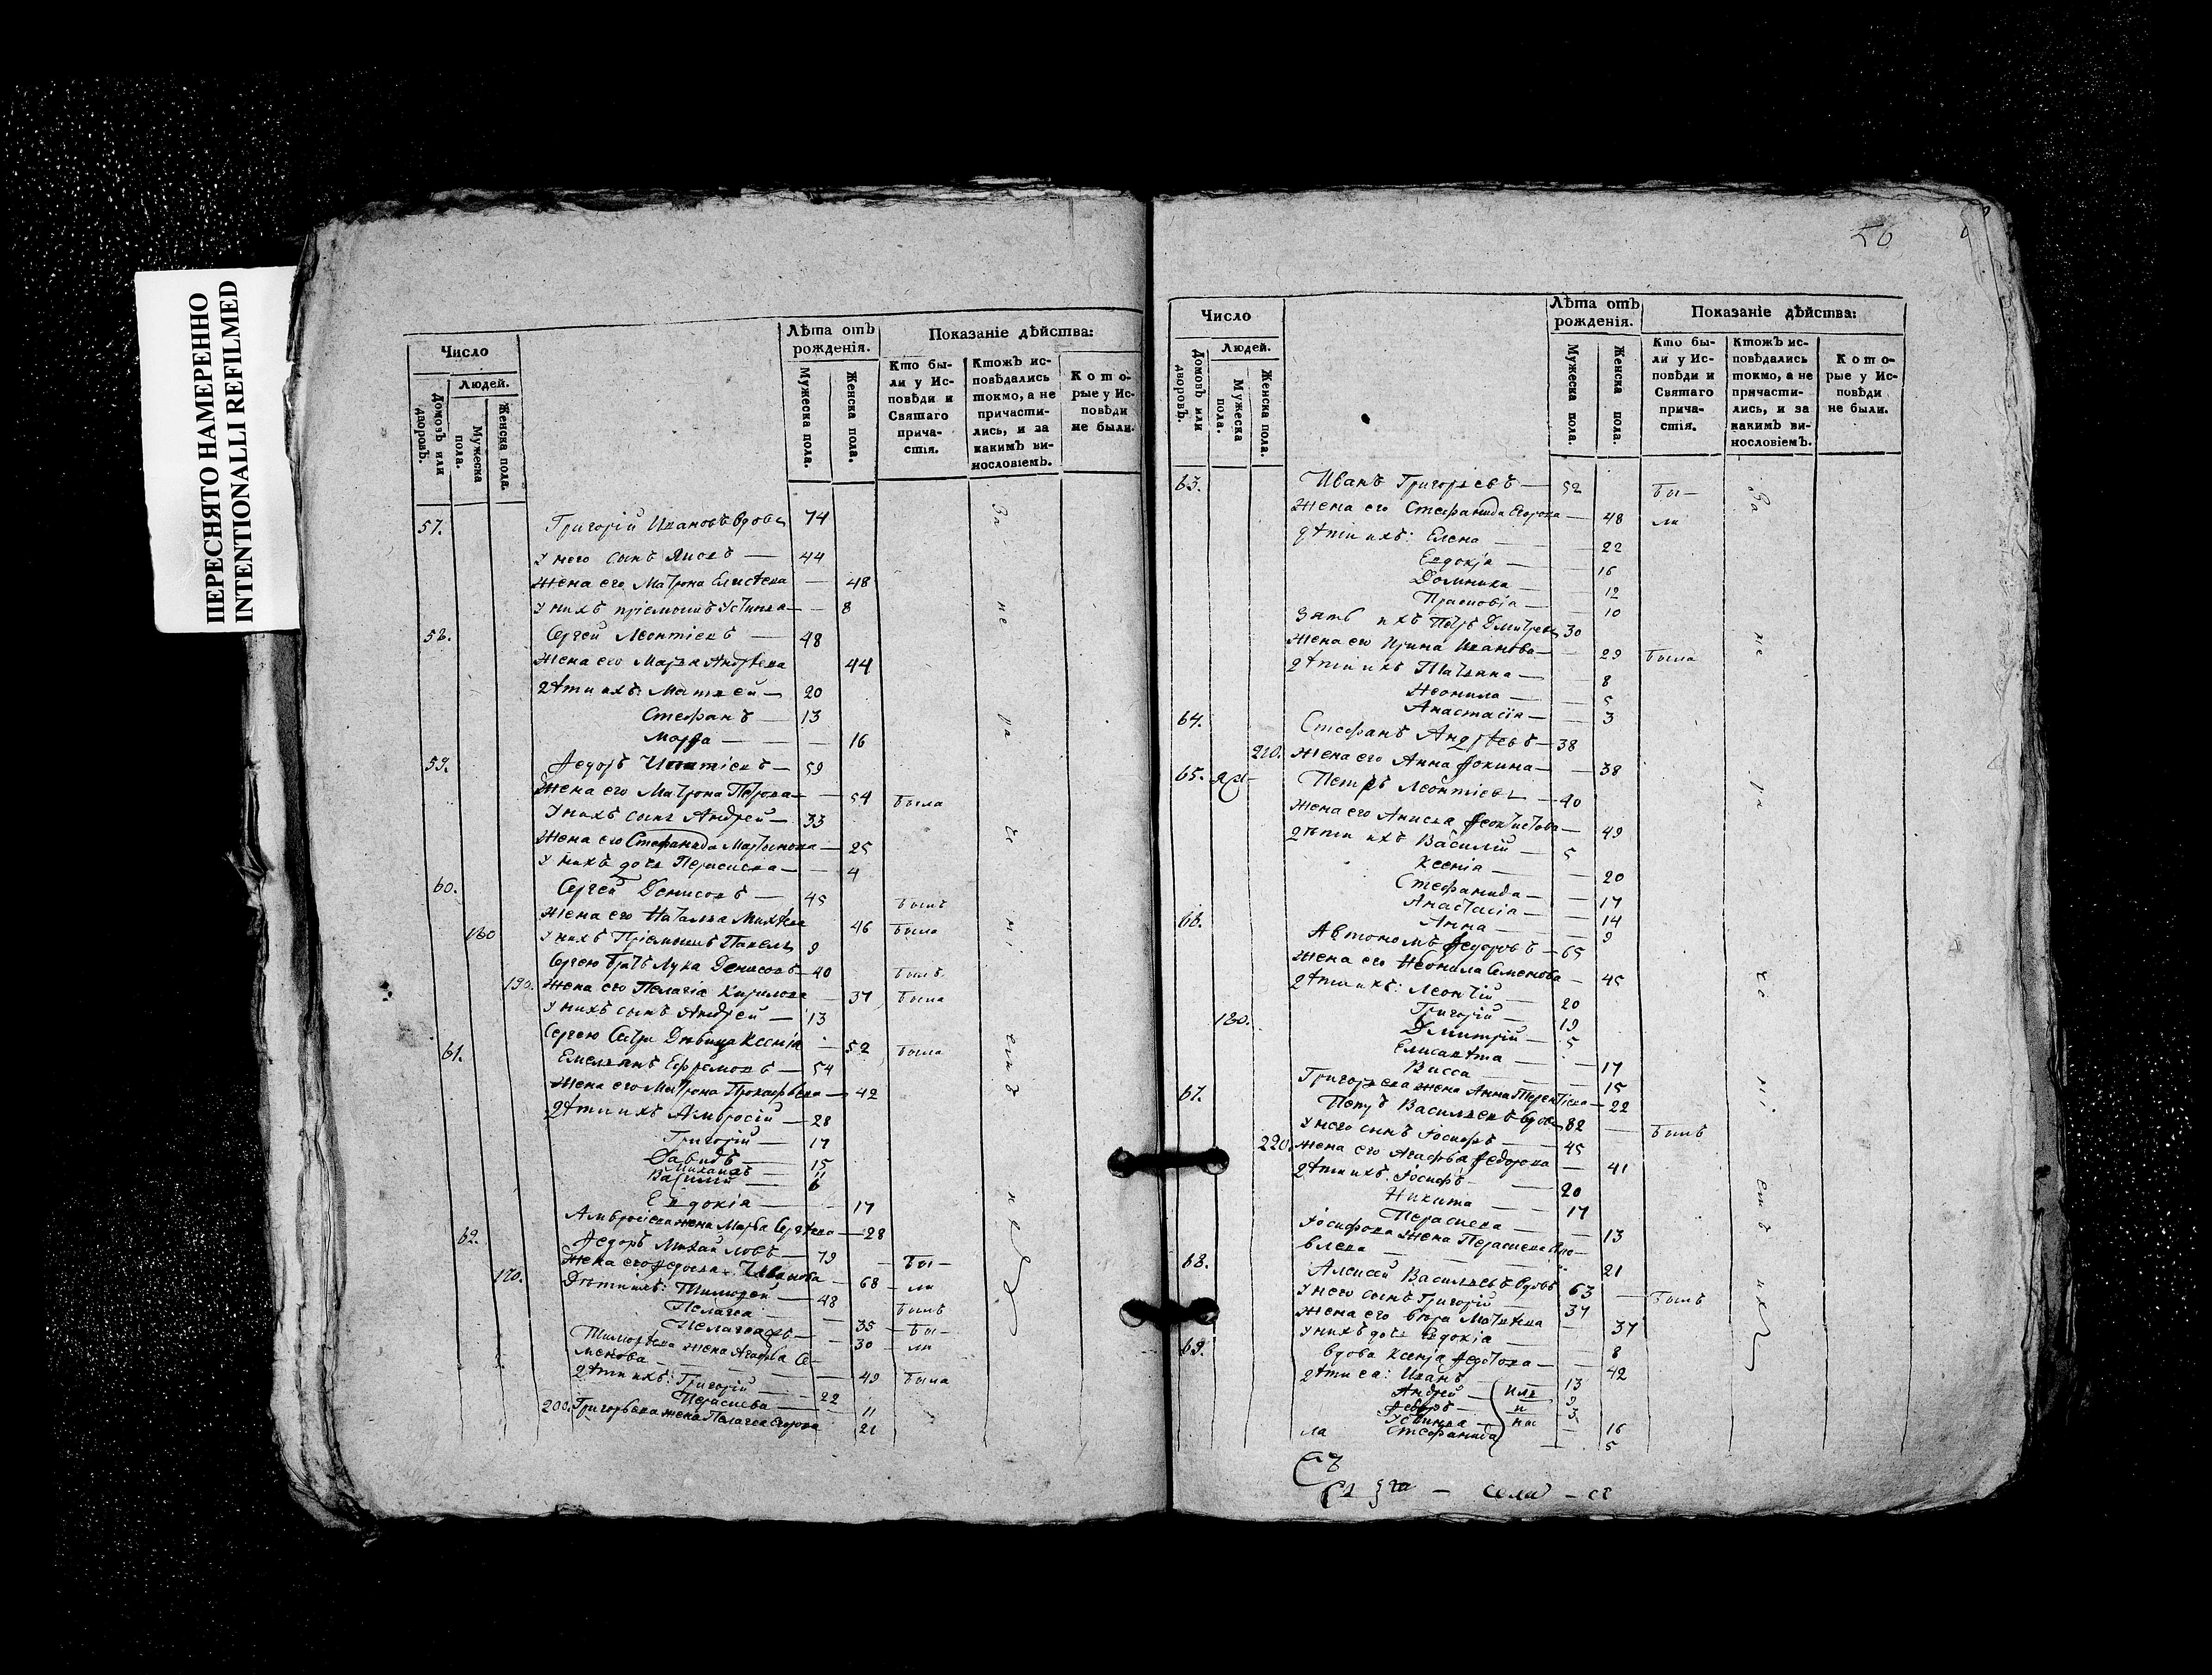 ПЕРЕСНЯТО НАМЕРЕННО
INTENTIONALLI REFILMED
Число
Людей.
Домовъ или дворовъ.
Мужеска пола.
Женска пола.
Лѣта отъ рожденія.
Мужеска пола.
Женска пола.
Показаніе дѣйства:
Кто были у Исповѣди и Святаго причастія.
Ктожъ исповѣдались токмо, а не причастились, и за какимъ винословіемъ.
Которые у Исповѣди не были.
57. Григорій Ивановъ вдовъ 74
У него сынъ Яковъ — 44
Жена его Матрона Елисѣева — 48
У нихъ пріемышъ Устинья — 8
58. Сергей Леонтіевъ — 48
Жена его Марья Андрѣева 44
Дѣти ихъ: Матвей — 20
Стефанъ — 13
Марфа — — 16
59. Федоръ Ипатіевъ — 59
Жена его Матрона Петрова — 54 была
У нихъ сынъ Андрей — 33
Жена его Стефанида Мартынова — 25
У нихъ дочь Параскева — 4
60. Сергей Денисовъ — 45 былъ
Жена его Наталья Михѣева 46 была
180 У нихъ Пріемышъ Павелъ 9
Сергею братъ Лука Денисовъ — 40 былъ
190. Жена его Пелагія Кирилова 37 была
У нихъ сынъ Андрей — 13
Сергею сестра Дѣвица Ксенія — 52 была
61. Емельянъ Ефремовъ — 54
Жена его Матрона Прокофьева — 42
Дѣти ихъ Амвросій — 28
Григорій — 17
Давидъ — 15
Михаилъ — 11
Василій — 6
Евдокія — 17
Амвросіева жена Марѳа Сергѣева — 28
62. Федоръ Михайловъ — 79 — бы—
Жена его Федосья Иванова — 68 — ли
170. Дѣти ихъ: Тимофей — 48 былъ
Пелагея — 35 — бы—
30 — ли
Тимофѣева жена Агафья Се-
менова — 49 была
Дѣти ихъ: Григорій — 22
Параскева — 11
200. Григорьева жена Пелагея Егорова 21
За не ра че ні емъ
56
Число
Людей.
Домовъ или дворовъ.
Мужеска пола.
Женска пола.
Лѣта отъ рожденія.
Мужеска пола.
Женска пола.
Показаніе дѣйства:
Кто были у Исповѣди и Святаго причастія.
Ктожъ исповѣдались токмо, а не причастились, и за какимъ винословіемъ.
Которые у Исповѣди не были.
63. Иванъ Григорьевъ — 52 бы—
Жена его Стефанида Егорова — 48 ли
Дѣти ихъ: Елена — 22
Евдокія — 16
Домника — 12
Прасковія — 10
Зять ихъ Петръ Дмитревъ 30
Жена его Ирина Иванова — 29 была
Дѣти ихъ Татьяна — 8
Неонила — 5
Анастасія — 3
64. Стефанъ Андрѣевъ — 38
210. Жена его Анна Фокина — 38
65. Петръ Леонтіевъ — 40
Жена его Анисья Феоктистова — 49
Дѣти ихъ Василій — 5
Ксенія — 20
Стефанида — 17
Анастасія — 14
Анна — 9
66. Автономъ Федоровъ — 65
Жена его Неонила Семенова — 45
Дѣти ихъ: Леонтій — 20
Григорій — 19
180. Дмитрій — 5
Елисавѣта — 17
Васса — 15
Григорьева жена Анна Терентіева — 22
67. Петръ Васильевъ вдовъ 82 былъ
У него сынъ Іосифъ — 45
220. Жена его Агафья Федорова — 41
Дѣти ихъ: Іосифъ — 20
Никита — 17
Параскева — 13
Іосифова жена Параскева
влева — 21
68. Алексей Васильевъ вдовъ 63 — былъ
У него сынъ Григорій — 37
Жена его Матвѣева 37
У нихъ дочь Евдокія — 8
69. Вдова Ксенія Федотова — 42
Дѣти еа: Иванъ — 13
Андрей — 9
Федоръ — 3
Устинья — 16
Стефанида 5
За не ра че ні емъ ихъ
ла
села